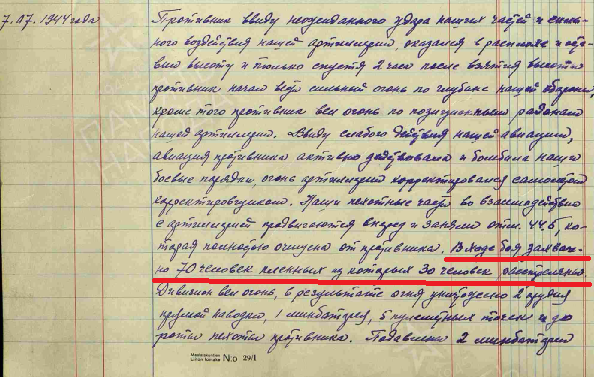 7.07.1944 года
Противник ввиду неожиданного удара наших частей и силь-
ного воздействия нашей артиллерии, оказался в расплохе и сда-
вил высоту и только спустя 2 часа после взятия высоты
противник начал вести сильный огонь по глубине нашей обороны,
кроме того противник вел огонь по позиционным районам
нашей артиллерии. Ввиду слабого действия нашей авиации,
авиация противника активно действовала и бомбила наши
боевые порядки, огонь артиллерии корректировался самолетом
корректировщиком. Наши пехотные части во взаимодействии
с артиллерией продвигаются вперед и заняли отм. 44.6, ко-
торая полностью очищена от противника. В ходе боя захваче-
но 70 человек пленных из которых 30 человек расстреляны.
Дивизион вел огонь, в результате огня уничтожено 2 орудия
прямой наводки, 1 минбатарея, 5 пулеметных точек и до
роты пехоты противника. Подавлены 2 минбатареи
N:o 29/1